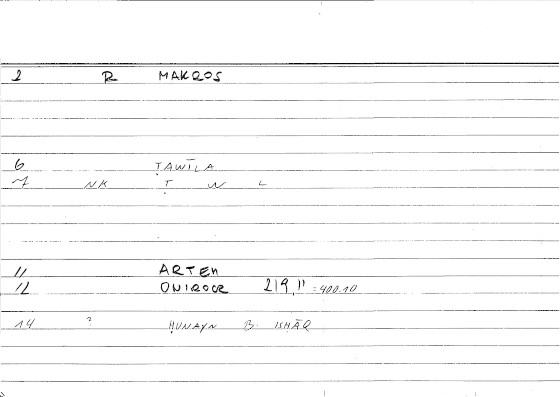 2 R MAKROS
6 ṬAWĪLA
~7 NK Ṭ W L
11 ARTEM
12 ONIROCR 219,11 = 400.10
14 ? ḤUNAYN B. ISḤĀQ